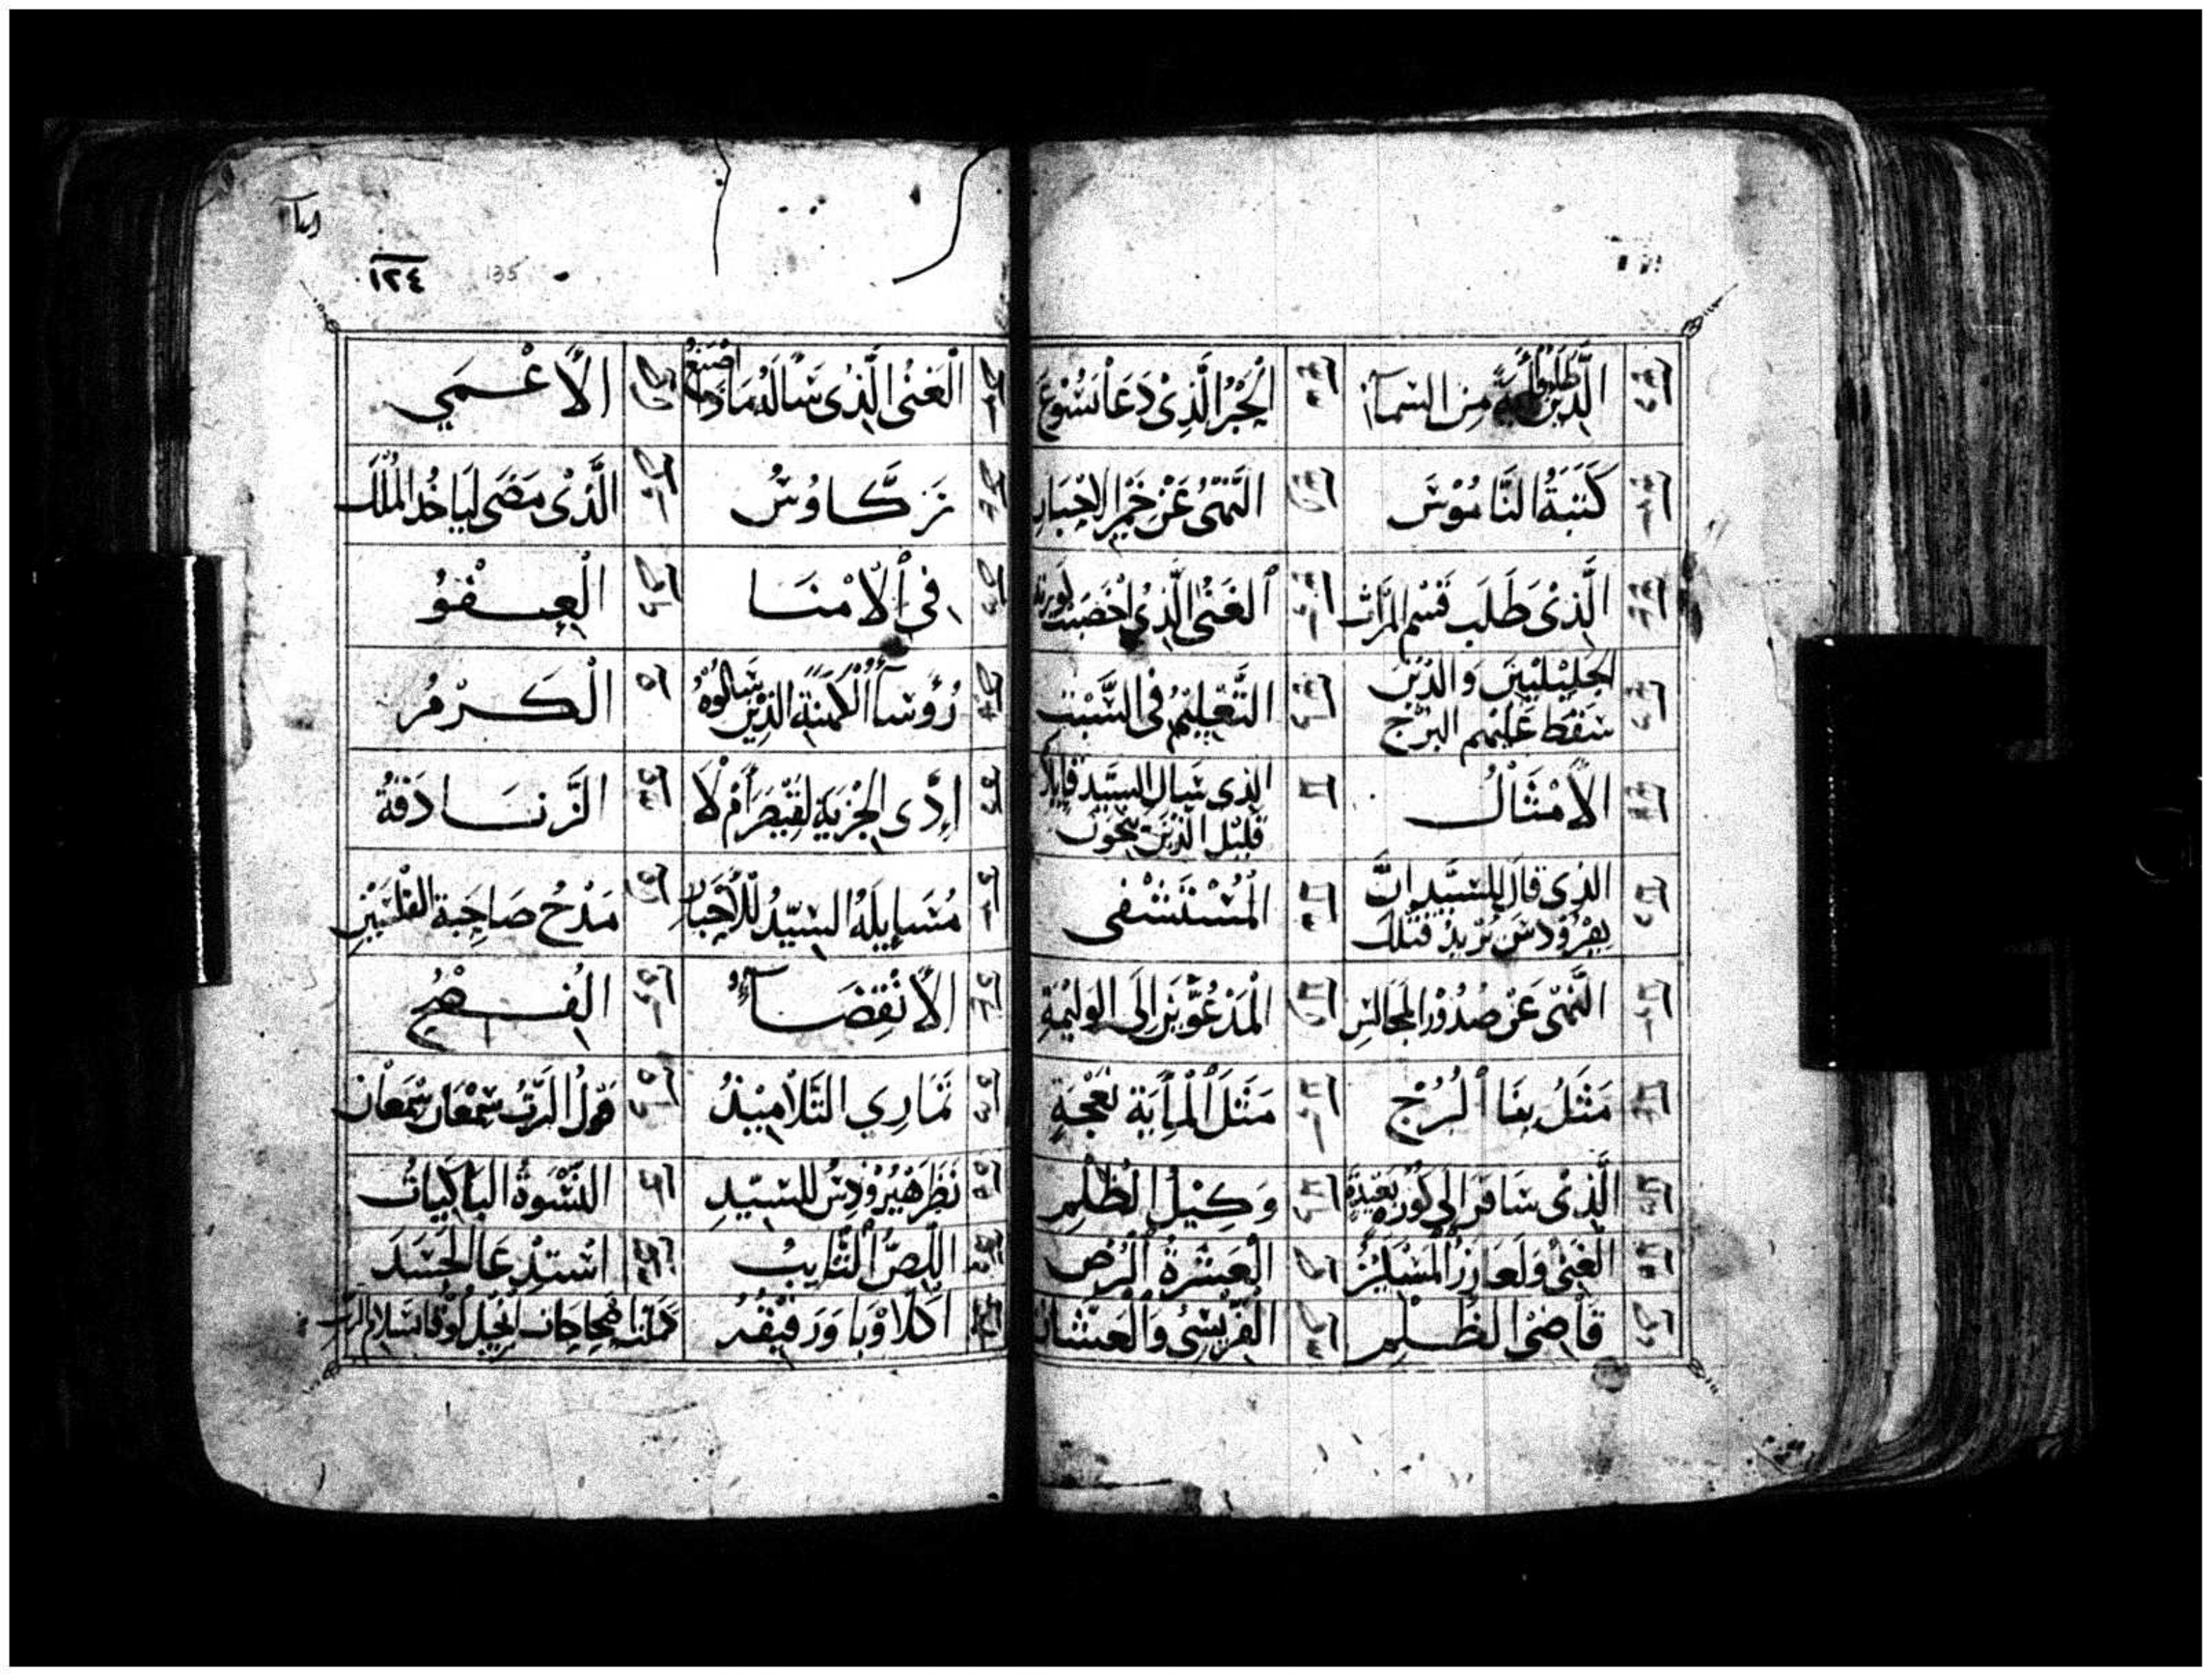 الَّذِينَ طَلَبُوا آيَةً مِنَ السَّمَاءِ
الْحَبْرُ الَّذِي دَعَا يَسُوعَ
كَتَبَةُ النَّامُوسَ
النَّهْيُ عَنْ خَمِيرِ الاحْبَارِ
الَّذِي طَلَبَ قَسْمِ المِيرَاث
الغَنِيُّ الَّذِي اخْصَبَتْ كُورته
الجَلِيلِيينَ وَالَّذِينَ
سَقَطَ عَلَيْهِم البُرْج
التَّعْلِيمُ فِي السَّبْت
الأَمْثَالُ
الذي سَال السَّيِّد قَايلاً
قَلِيل الَّذِينَ ينجون
الذي قَالَ للسَّيِّد إنَّ
هِيرُودسَ يُريدُ قَتْلَكَ
الْمُسْتَسْقِى
النَّهْي عَنْ صُدُورِ المَجَالِسِ
الْمَدْعُوِّينَ إِلَى الوَلِيمَةِ
مَثَلُ بِنَا الْبُرْجِ
مَثَلُ الْمِايَةِ نَعْجَةٍ
الَّذِي سَافَرَ إِلَى كُورَةٍ بَعِيدَةٍ
وَكِيلُ الظُّلْمِ
الغَنِيُّ وَلَعَازِرُ الْمَسْكِينُ
الْعَشَرَةُ الْبُرْصُ
قَاضِيُ الظُّلْمِ
الفَرِّيسِيُّ وَالْعَشَّار
١٢٤
135
الْغَنِيُ الَّذِي سَالَهُ مَاذَا اصْنَعُ
الأَعْمَي
زَكَّاوُسُ
الَّذِي مَضَى ليَاخُد الْمُلْكَ
فِي الأَمْنَا
الْعِفْوُ
رُؤَسَاءُ الْكَهَنَةِ الَّذِينَ سَالُوهُ
الْكَرْمُ
إدَّى الجِزْيَةِ لِقَيْصَرَ أَمْ لاَ
الزَّنَادَقَةُ
مُسَايلَةُ السَّيِّدُ لِلأَحْبَارِ
مَدْحُ صَاحِبَةِ الفِلْسَيْنِ
الأَنْقِضَاءُ
الْفِصْحُ
تَمَارِي التَّلاَمِيدُ
قولُ الرَّبِّ سِمْعَان سِمْعَان
نَظَرَ هِيرُودِسُ للسَّيِّدِ
النِّسْوَةُ البَاكِيَاتُ
اللِّصُّ التَّايبُ
اسْتِدْعَا الجَسَدَ
اكْلاَوْبَا وَرَفِيقُهُ
كملت اصحاحات انجيل لوقا بسلام الرب